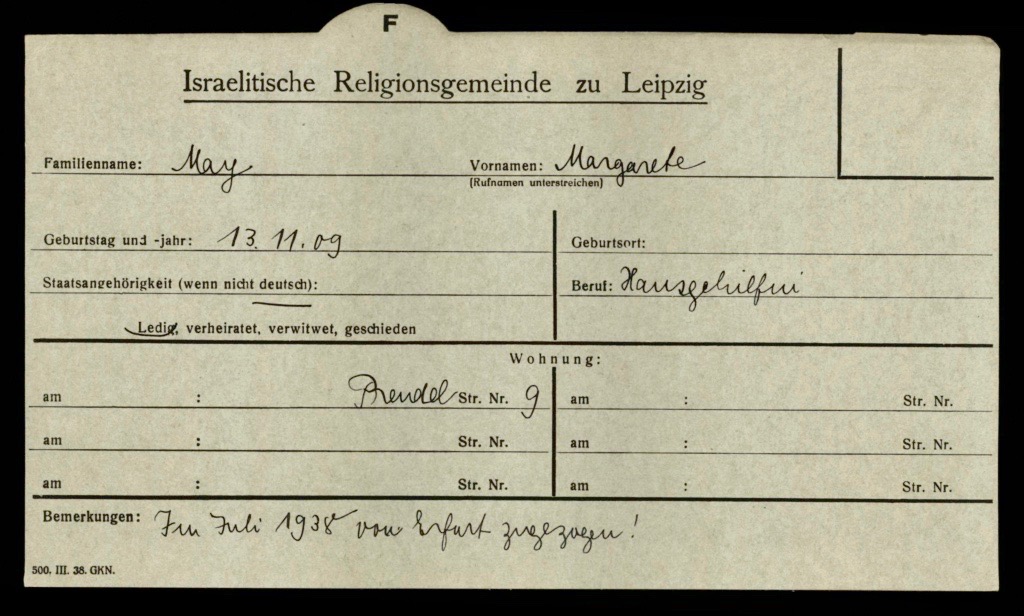 F
Israelitische Religionsgemeinde zu Leipzig
Familienname: May Vornamen: Margarete
(Rufnamen unterstreichen)
Geburtstag und -jahr: 13. 11. 09 Geburtsort:
Staatsangehörigkeit (wenn nicht deutsch): Beruf: Hausgehilfin
Ledig, verheiratet, verwitwet, geschieden
Wohnung:
am : Prendel Str. Nr. 9 am : Str. Nr.
am : Str. Nr. am : Str. Nr.
am : Str. Nr. am : Str. Nr.
Bemerkungen: Im Juli 1938 von Erfurt zugezogen!
500. III. 38. GKN.